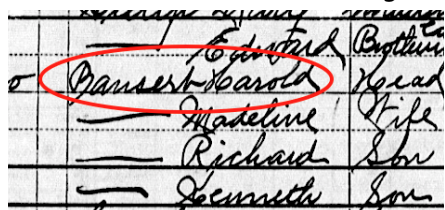 Edward Brother
Bansert Harold Head
Madeline Wife
Richard Son
Kenneth Son